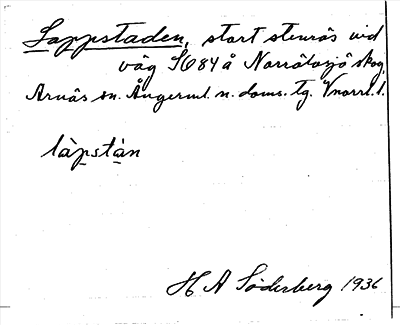 Lappstaden, stort stenrös vid
väg 1684 å Norrötosjö skog,
Arnäs sn. Ångerml. n. doms. tg. Vnorrl. l.
làpstàn
H A Söderberg 1936